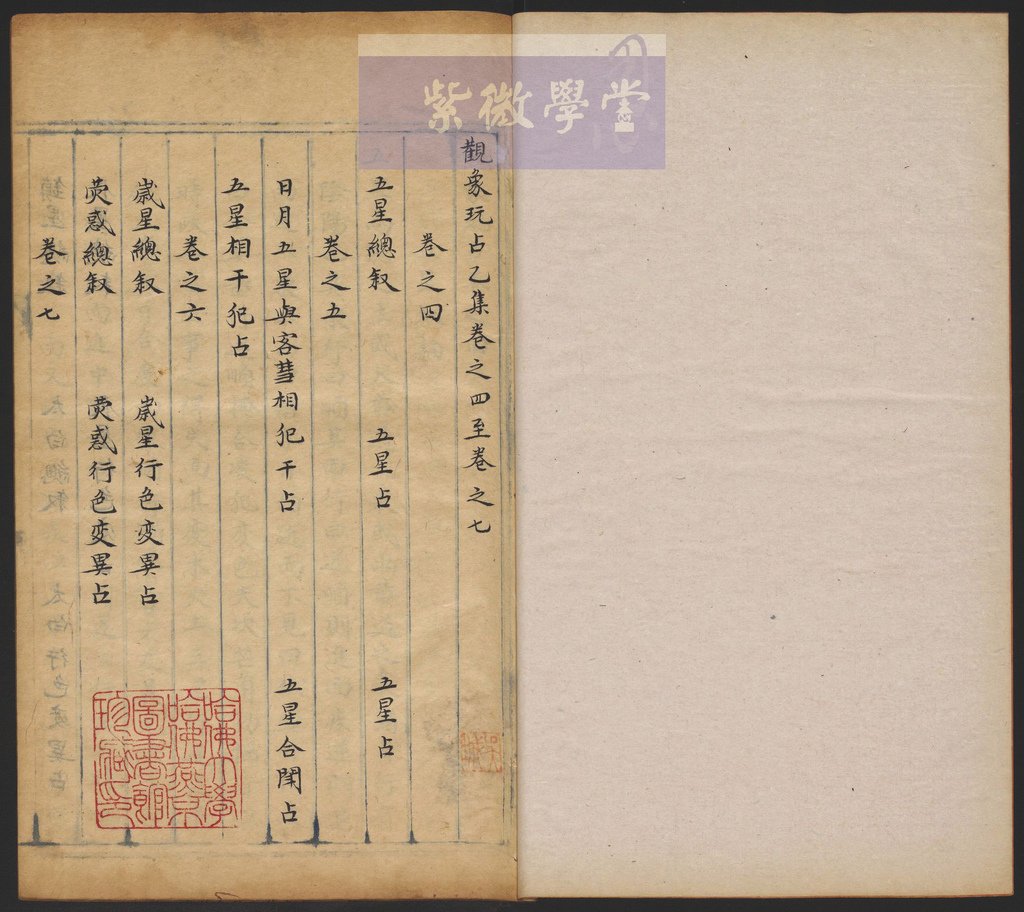 紫微學堂
觀象玩占乙集卷之四至卷之七
卷之四
五星總叙 五星占 五星占
卷之五
日月五星與客彗相犯干占 五星合鬪占
五星相干犯占
卷之六
歲星總叙 歲星行色変異占
荧惑總叙 荧惑行色変異占
卷之七
哈佛大學哈佛燕京圖書館珍藏印